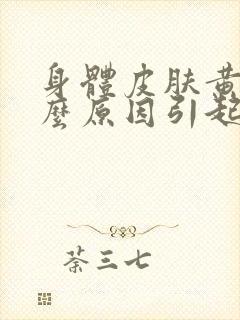 身體皮肤黄
麼原因引起
荼三七